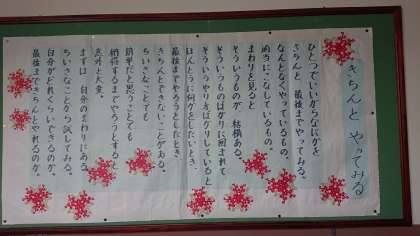 きちんと やってみる
ひとつでいいからなにかを
きちんと 最後までやってみる。
なんとなくやっているもの、
適当にこなしているもの。
まわりを見ると
そういうものが 結構ある。
そういうものばかりに囲まれて
そういうやり方ばかりしていると
ほんとうに何かをしたいとき、
最後までやろうとしたとき
きちんとできないことがある。
ちいさなことでも
簡単だと思うことでも
納得するまでやろうとすると
意外と大変。
まずは 自分のまわりにある
ちいさなことから試してみる。
自分がどれくらいできるのか。
最後まできちんとやれるのか。